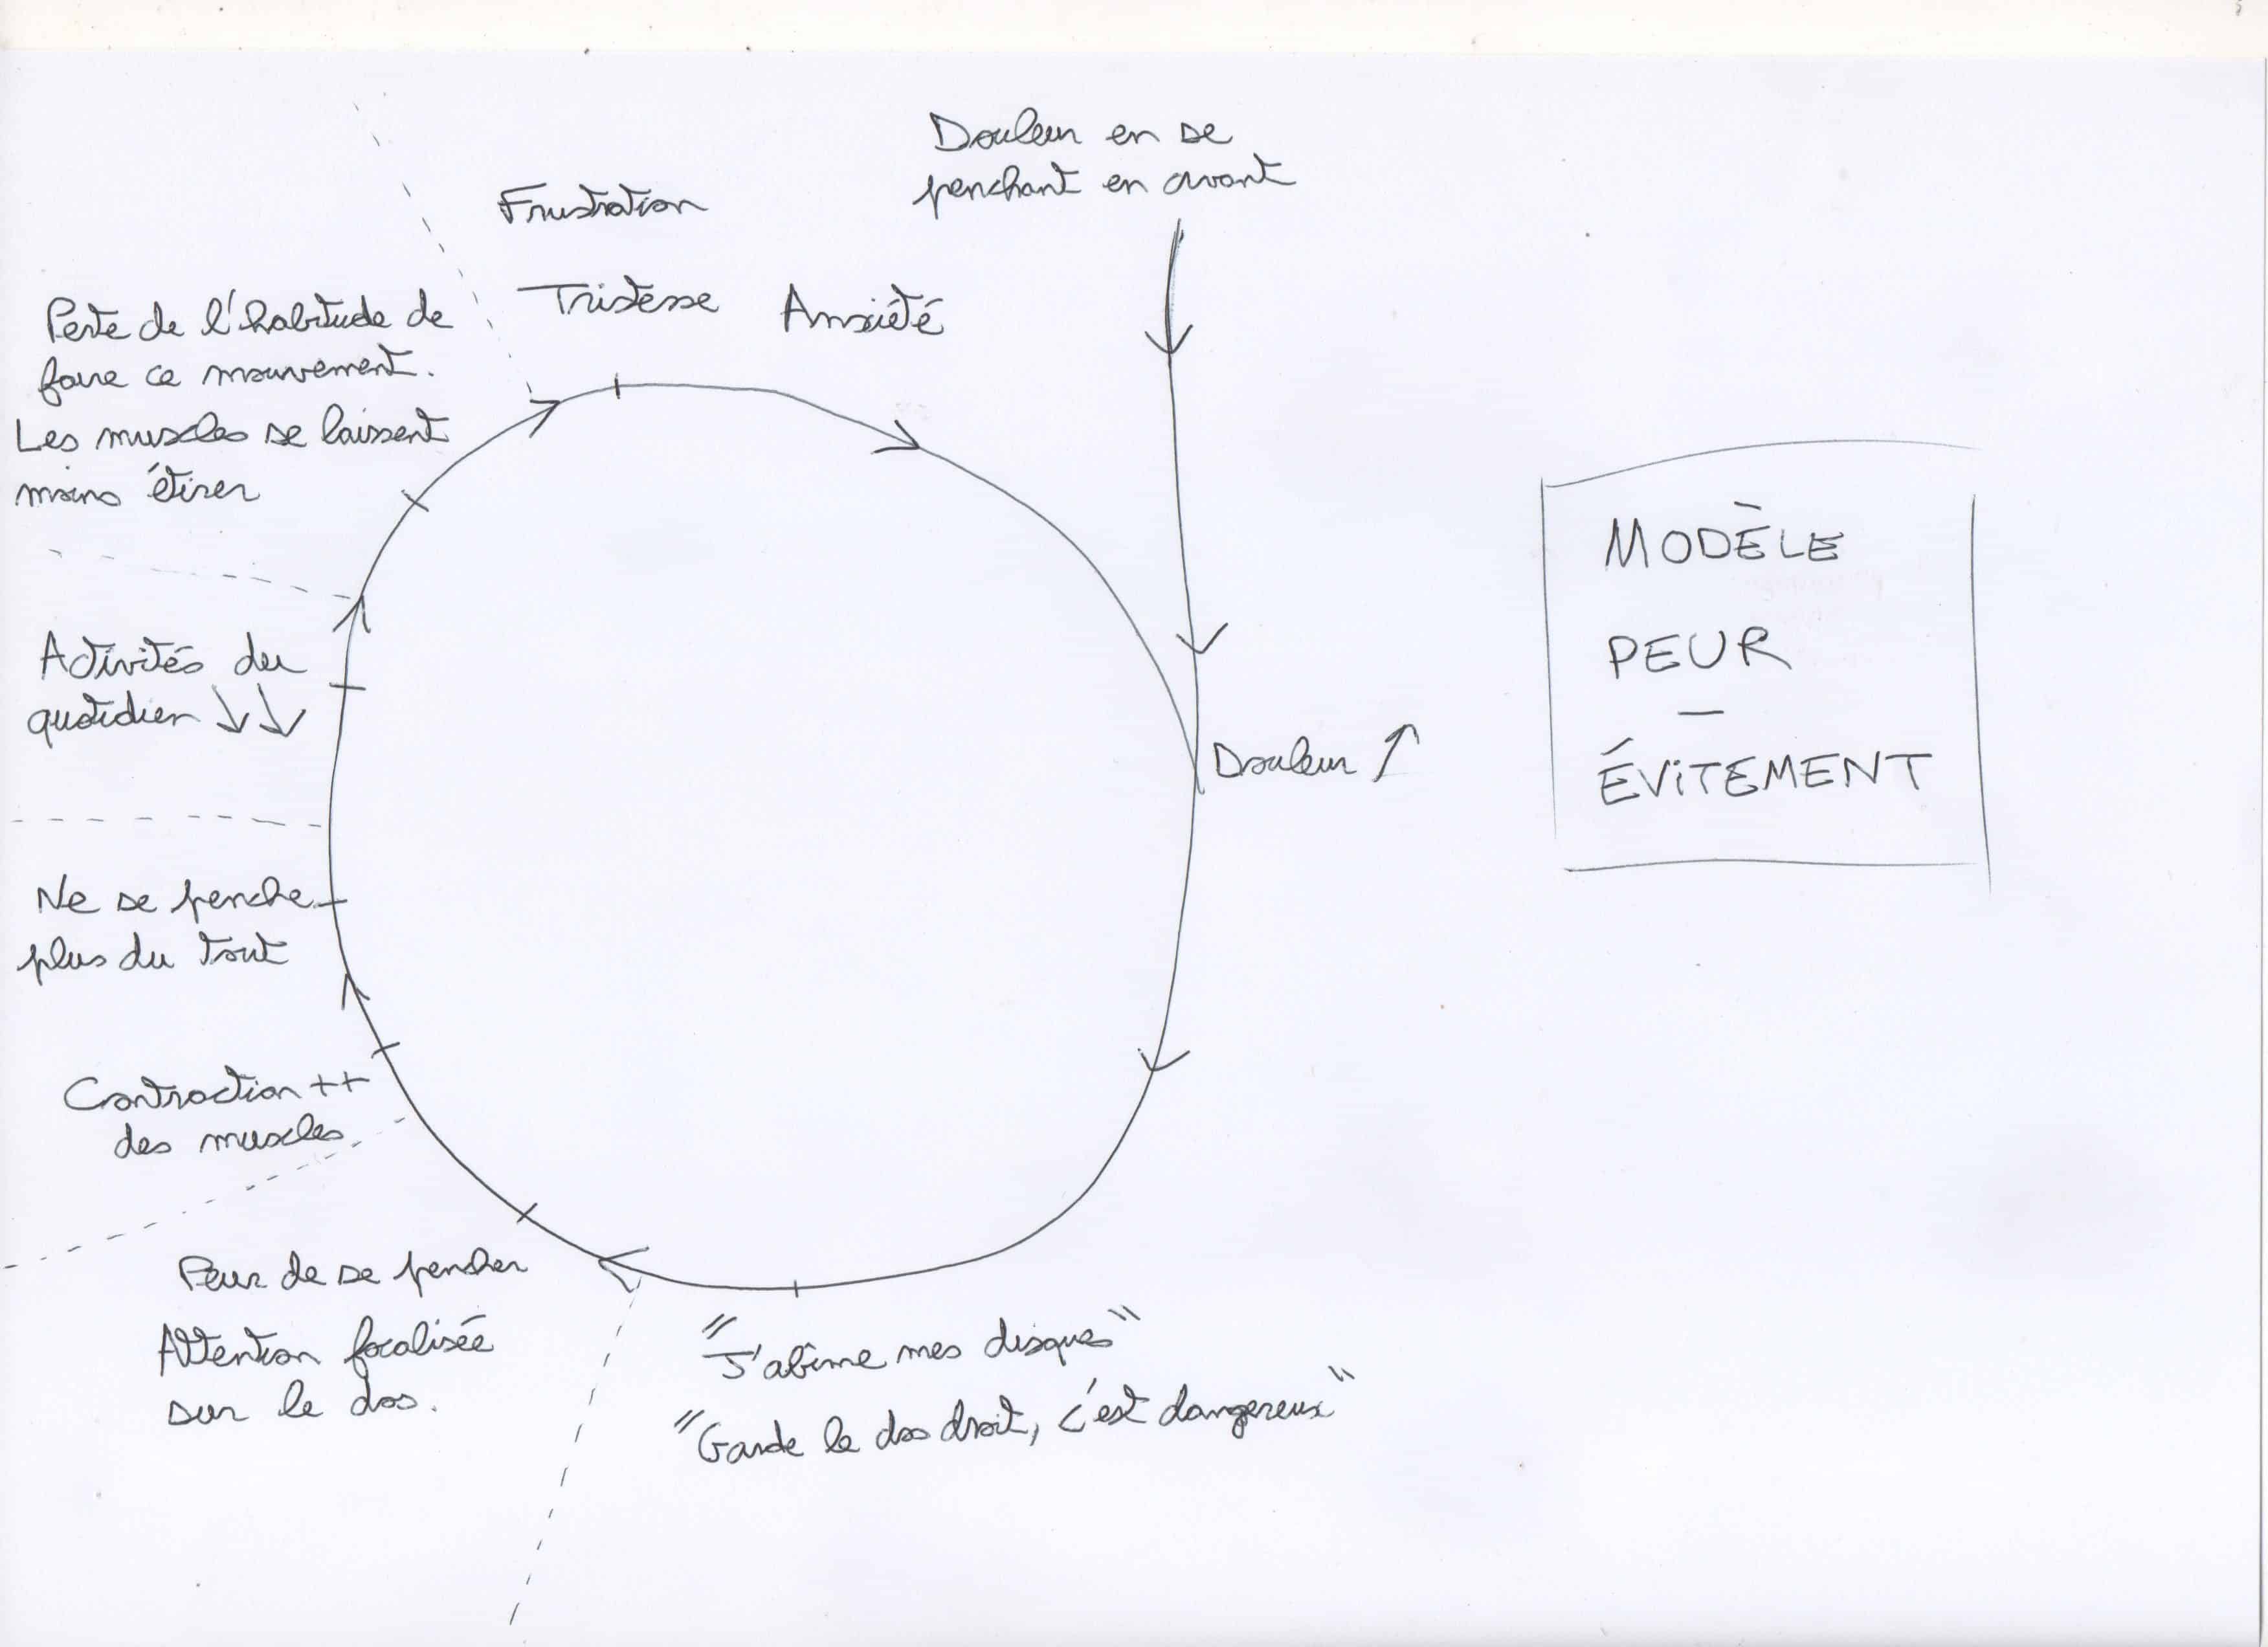 Douleur en se
penchant en avant
Frustration
Tristesse Anxiété
Perte de l'habitude de
faire ce mouvement.
Les muscles se laissent
moins étirer
Activités du
quotidien ↓↓
Ne se penche
plus du tout
Contraction ++
des muscles
Peur de se pencher
Attention focalisée
sur le dos.
"J'abîme mes disques"
"Garde le dos droit, c'est dangereux"
Douleur ↑
MODÈLE
PEUR
—
ÉViTEMENT